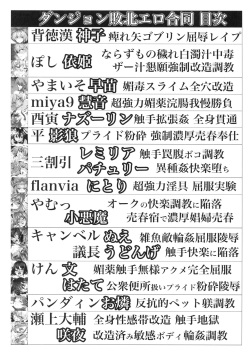 ダンジョン敗北エロ合同 目次
背徳漢 神子 痩れ矢ゴブリン屈辱レイプ
ぽし 依姫 ならずもの穢れ白濁汁中毒
ザー汁懇願強制改造調教
やまいそ 早苗 媚毒スライム全穴改造
miya9 慧音 超強力媚薬浣腸我慢勝負
酉寅 ナズーリン 触手拡張姦 全身貫通
平 影狼 プライド粉砕 強制濃厚売春奉仕
三割引 レミリア 触手罠腹ボコ調教
パチュリー 異種姦快楽堕ち
flanvia にとり 超強力淫具 屈服実験
やむっ オークの快楽調教に陥落
小悪魔 売春宿で濃厚娼婦売春
キャンベル ぬえ 雑魚敵輪姦屈服陵辱
議長 うどんげ 触手快楽に陥落
けん 文 媚薬触手無様アクメ完全屈服
はたて 公衆便所扱いプライド粉砕陵辱
パンダイン お燐 反抗的ペット躾調教
瀬上大輔 全身性感帯改造 触手地獄
咲夜 改造済み敏感ボディ輪姦調教